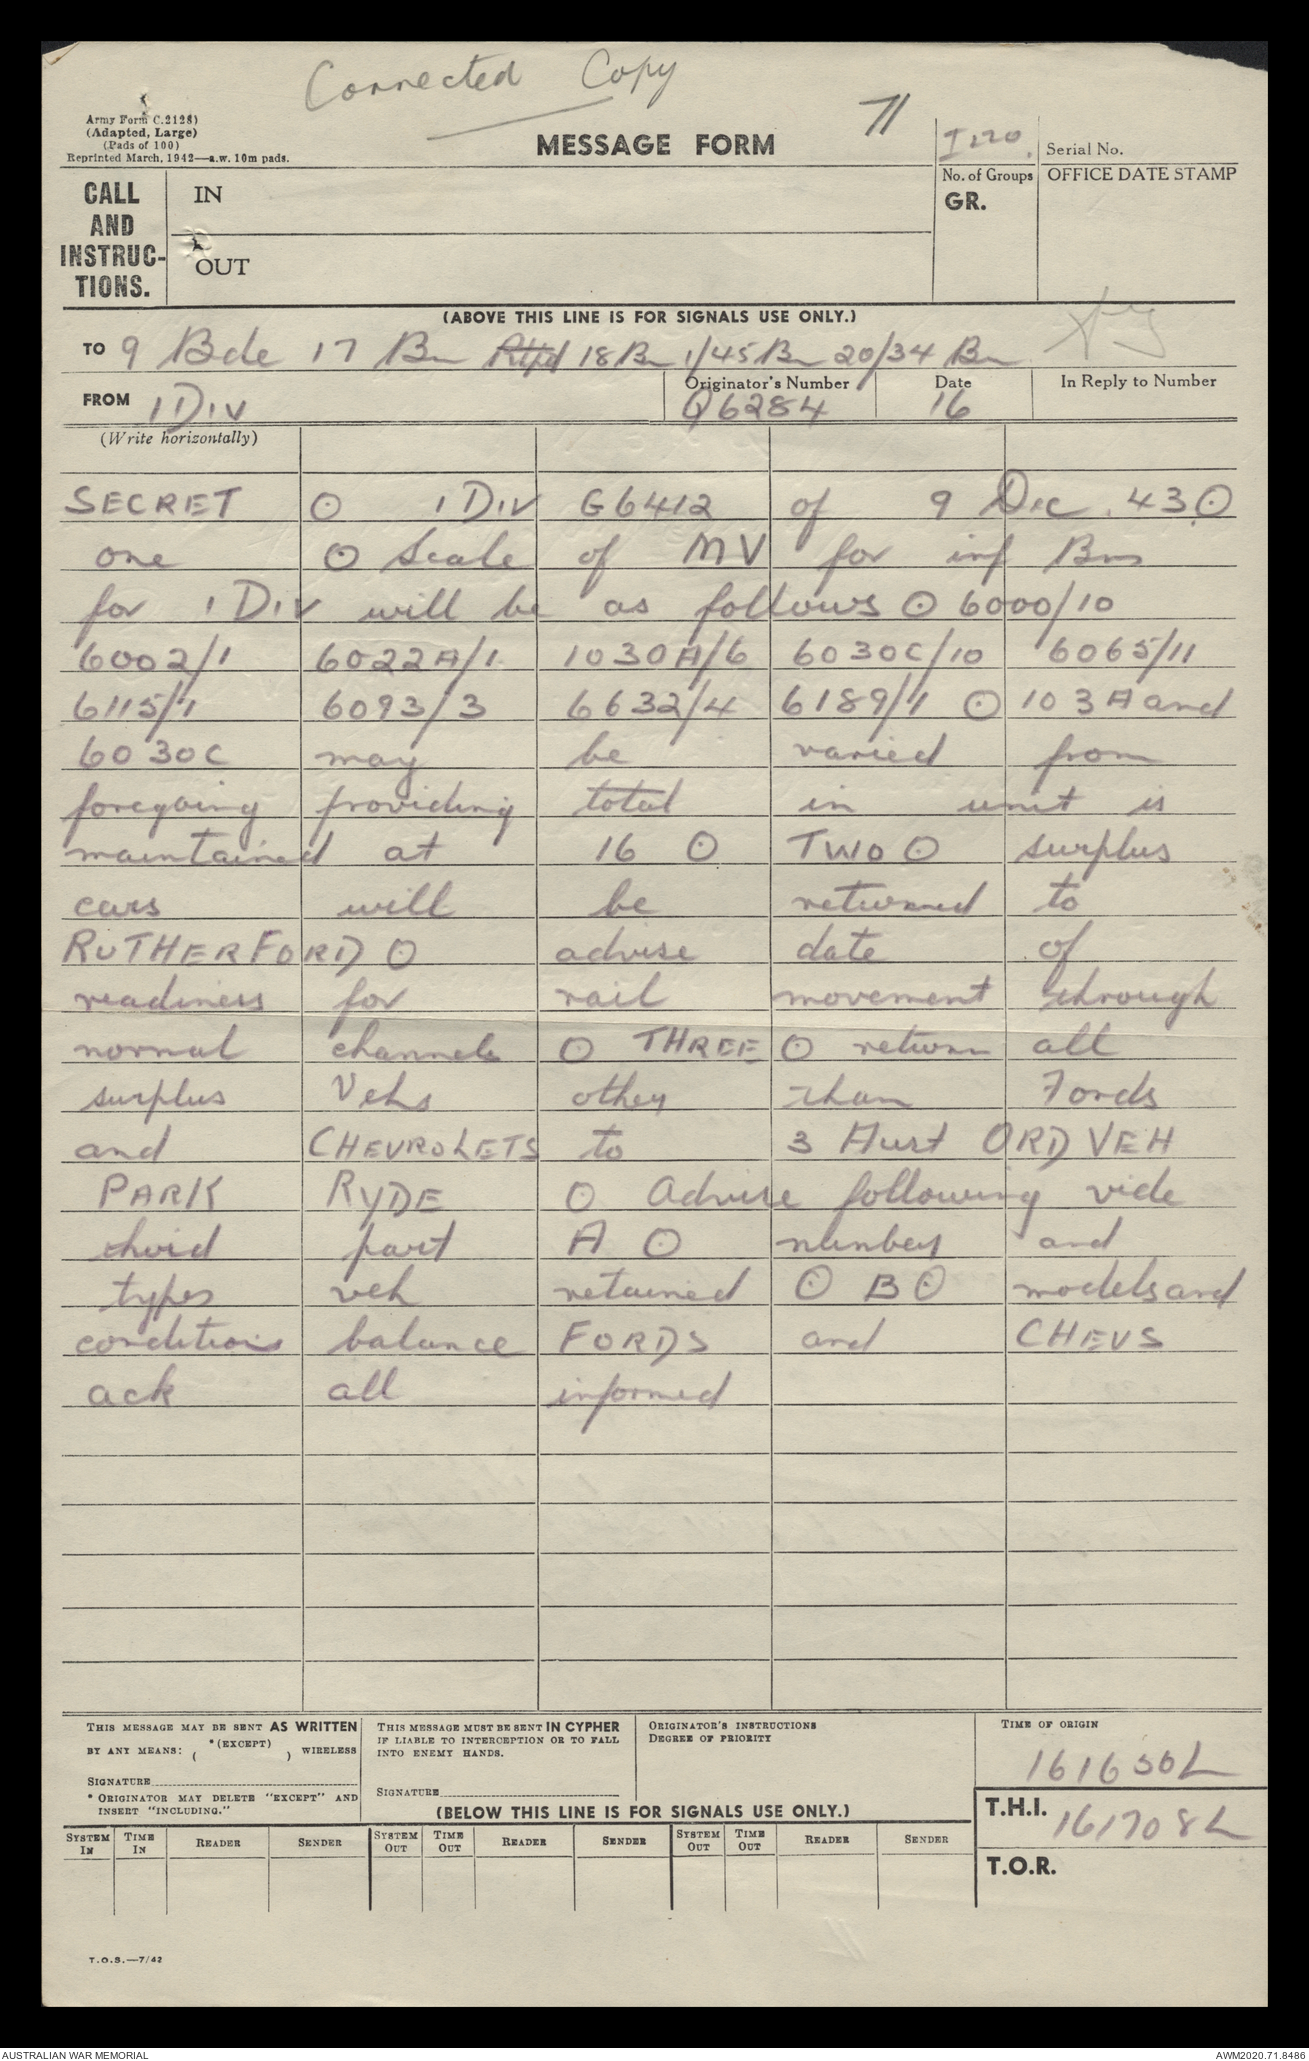 Corrected Copy
71
Army Form C.2128)
(Adapted, Large)
(Pads of 100)
Reprinted March, 1942—a.w. 10m pads.
MESSAGE FORM
I220.
Serial No.
CALL
AND
INSTRUC-
TIONS.
IN
OUT
No. of Groups
GR.
OFFICE DATE STAMP
(ABOVE THIS LINE IS FOR SIGNALS USE ONLY.)
TO 9 Bde 17 Bn Rttpd 18 Bn 1/45 Bn 20/34 Bn
FROM 1 DIV
Originator's Number Q6284
Date 16
In Reply to Number
(Write horizontally)
SECRET ⊙ 1 DIV G6412 of 9 Dec. 43 ⊙
one ⊙ Scale of MV for inf Bns
for 1 DIV will be as follows ⊙ 6000/10
6002/1 6022A/1 1030A/6 6030C/10 6065/11
6115/1 6093/3 6632/4 6189/1 ⊙ 103A and
6030C may be varied from
foregoing providing total in unit is
maintained at 16 ⊙ TWO ⊙ surplus
cars will be returned to
RUTHERFORD ⊙ advise date of
readiness for rail movement through
normal channels ⊙ THREE ⊙ return all
surplus Vehs other than Fords
and CHEVROLETS to 3 Aust ORD VEH
PARK RYDE ⊙ Advise following vide
third part A ⊙ number and
types veh retained ⊙ B ⊙ models and
conditions balance FORDS and CHEVS
ack all informed
THIS MESSAGE MAY BE SENT AS WRITTEN
BY ANY MEANS: *(EXCEPT) ( ) WIRELESS
SIGNATURE
* ORIGINATOR MAY DELETE "EXCEPT" AND
INSERT "INCLUDING."
THIS MESSAGE MUST BE SENT IN CYPHER
IF LIABLE TO INTERCEPTION OR TO FALL
INTO ENEMY HANDS.
SIGNATURE
ORIGINATOR'S INSTRUCTIONS
DEGREE OF PRIORITY
TIME OF ORIGIN
161650L
(BELOW THIS LINE IS FOR SIGNALS USE ONLY.)
T.H.I. 161708L
T.O.R.
SYSTEM IN TIME IN READER SENDER SYSTEM OUT TIME OUT READER SENDER SYSTEM OUT TIME OUT READER SENDER
T.O.S.—7/42
AUSTRALIAN WAR MEMORIAL
AWM2020.71.8486